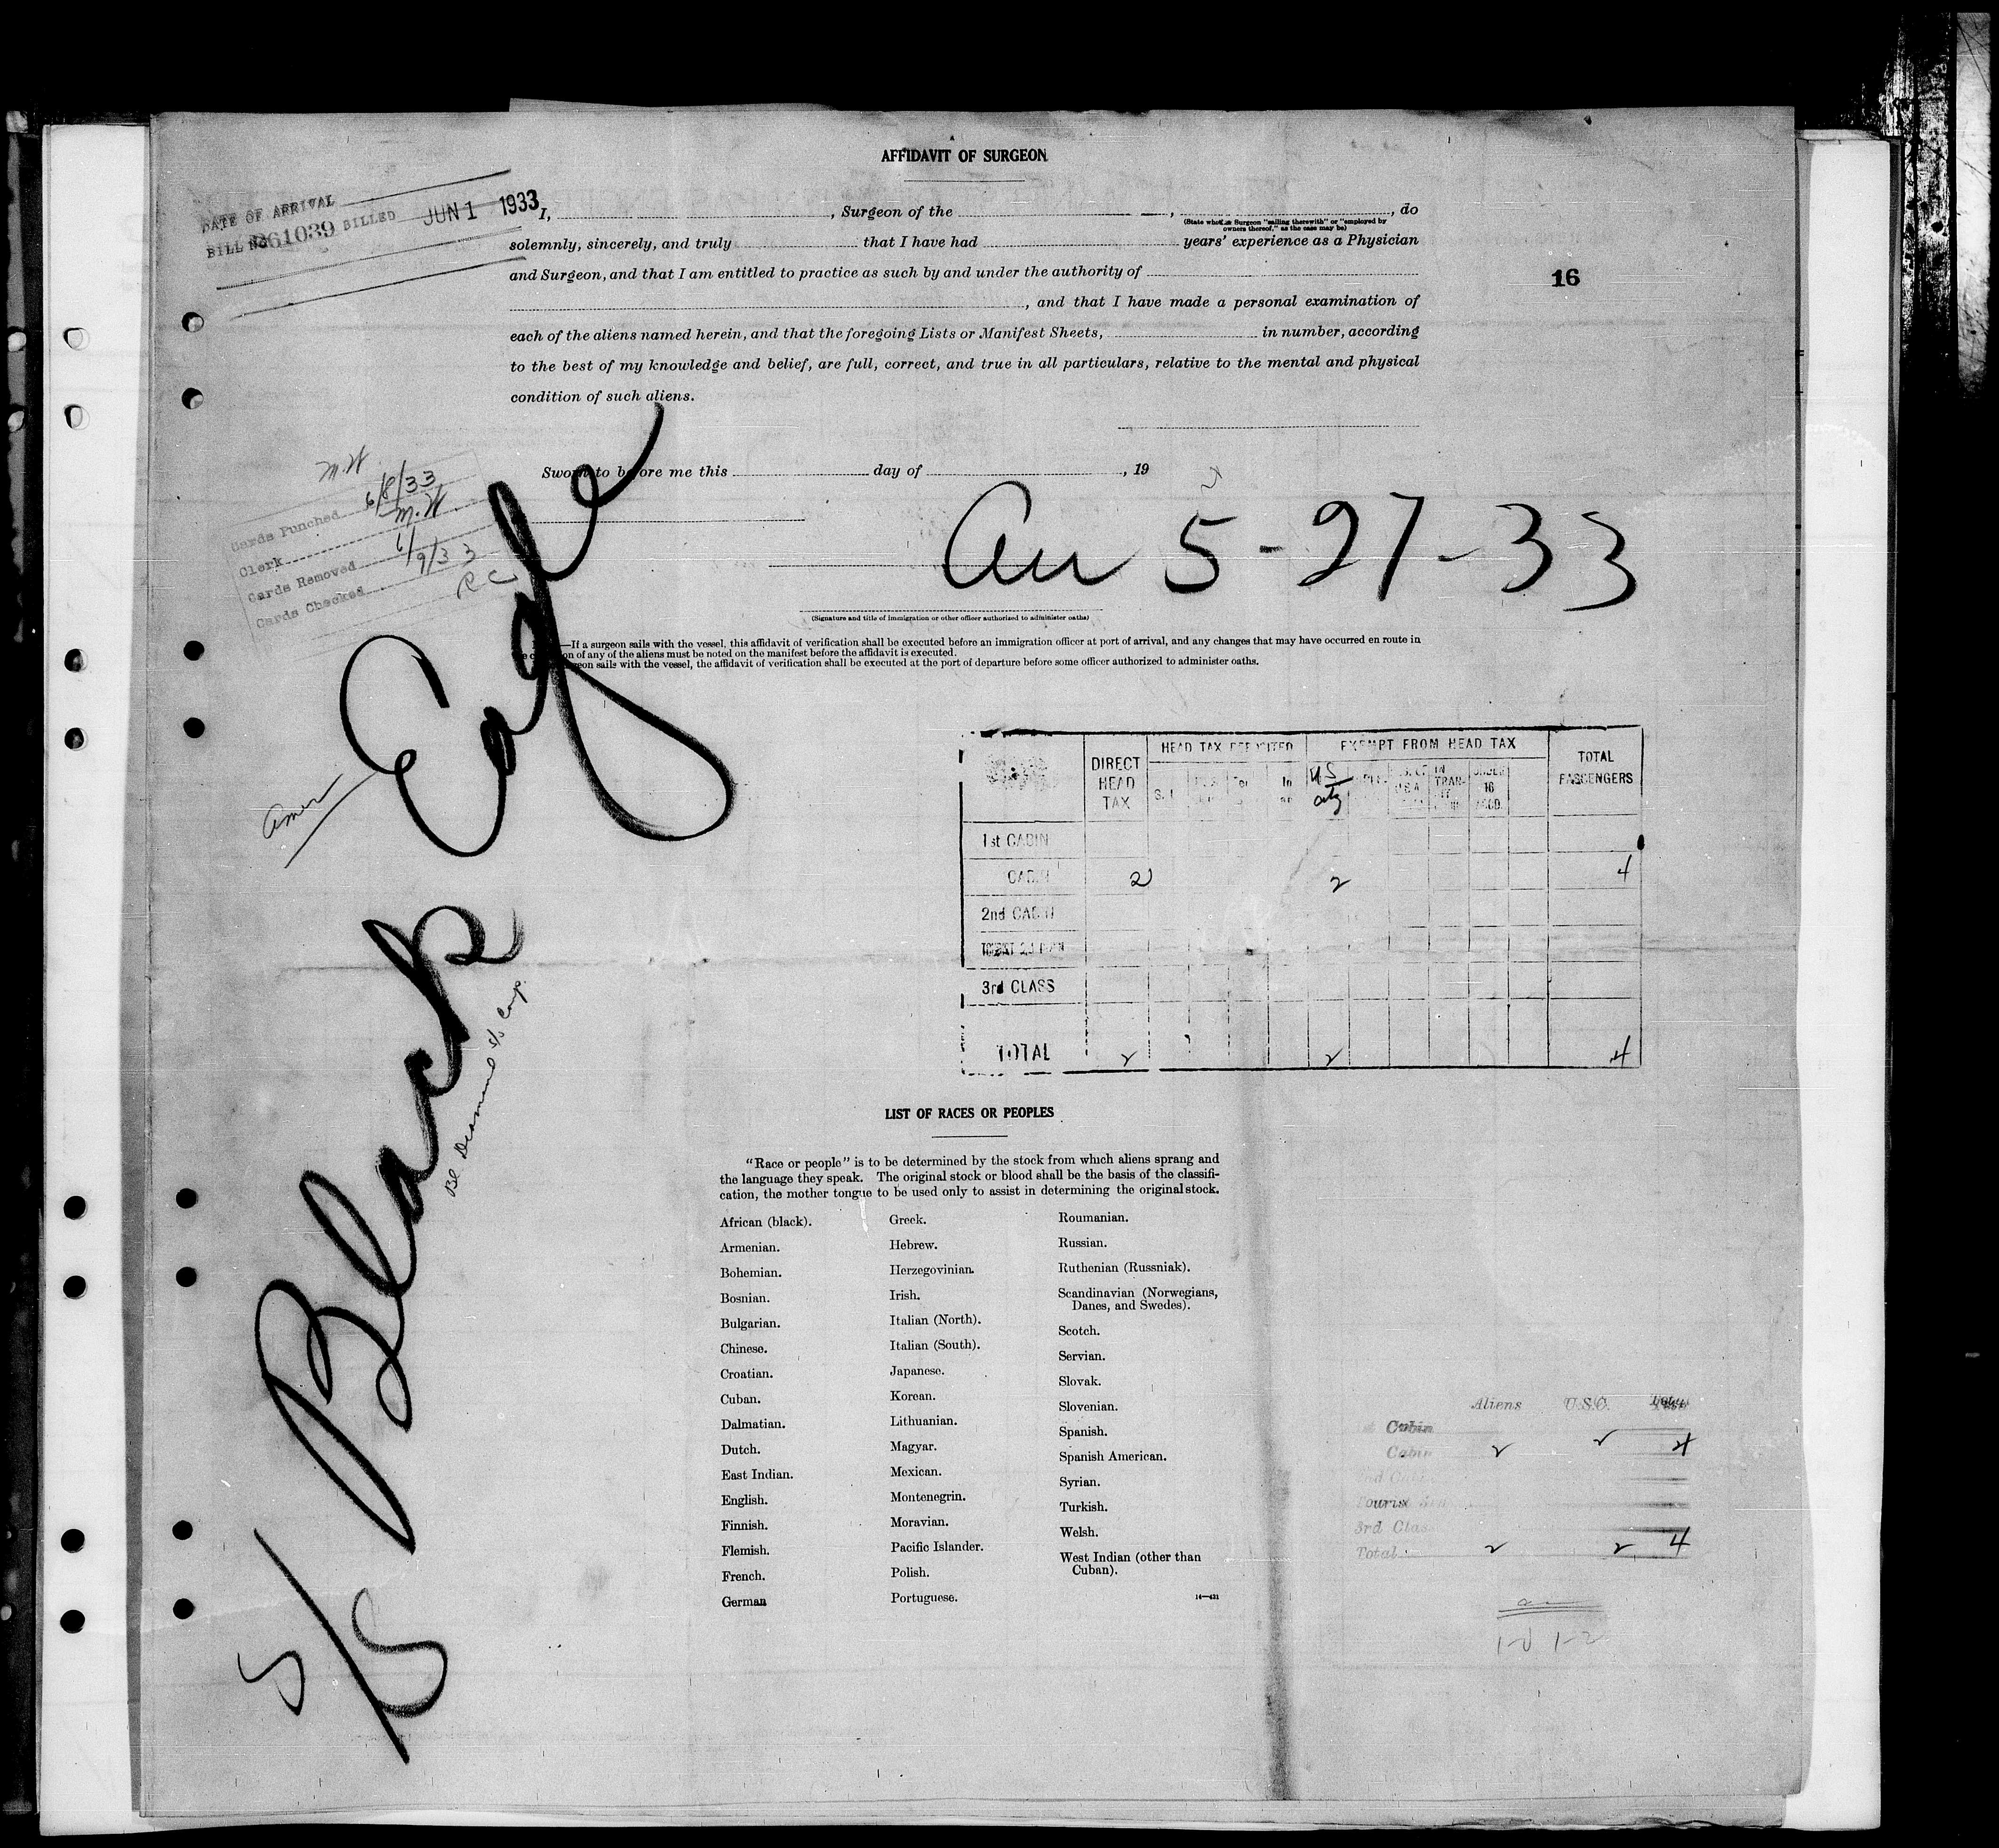 AFFIDAVIT OF SURGEON
DATE OF ARRIVAL
BILL No 361039 BILLED JUN 1 1933
I, , Surgeon of the , , do
(State whether Surgeon "sailing therewith" or "employed by owners thereof," as the case may be)
solemnly, sincerely, and truly that I have had years' experience as a Physician
and Surgeon, and that I am entitled to practice as such by and under the authority of
, and that I have made a personal examination of
each of the aliens named herein, and that the foregoing Lists or Manifest Sheets, in number, according
to the best of my knowledge and belief, are full, correct, and true in all particulars, relative to the mental and physical
condition of such aliens.
16
Sworn to before me this day of , 19
M.W.
Cards Punched 6/8/33
Clerk M.W.
Cards Removed 6/9/33
Cards Checked RC
Arr 5-27-33
(Signature and title of immigration or other officer authorized to administer oaths)
—If a surgeon sails with the vessel, this affidavit of verification shall be executed before an immigration officer at port of arrival, and any changes that may have occurred en route in
on of any of the aliens must be noted on the manifest before the affidavit is executed.
geon sails with the vessel, the affidavit of verification shall be executed at the port of departure before some officer authorized to administer oaths.
S/S Black Eagle
Amer
Bl Diamond S/S Corp.
DIRECT HEAD TAX
HEAD TAX DEPOSITED
EXEMPT FROM HEAD TAX
TOTAL PASSENGERS
US
IN TRAN-
UNDER 16
1st CABIN
CABIN 2 2 4
2nd CABIN
TOURIST
3rd CLASS
TOTAL 2 2 4
LIST OF RACES OR PEOPLES
"Race or people" is to be determined by the stock from which aliens sprang and
the language they speak. The original stock or blood shall be the basis of the classifi-
cation, the mother tongue to be used only to assist in determining the original stock.
African (black).
Armenian.
Bohemian.
Bosnian.
Bulgarian.
Chinese.
Croatian.
Cuban.
Dalmatian.
Dutch.
East Indian.
English.
Finnish.
Flemish.
French.
German
Greek.
Hebrew.
Herzegovinian.
Irish.
Italian (North).
Italian (South).
Japanese.
Korean.
Lithuanian.
Magyar.
Mexican.
Montenegrin.
Moravian.
Pacific Islander.
Polish.
Portuguese.
Roumanian.
Russian.
Ruthenian (Russniak).
Scandinavian (Norwegians,
Danes, and Swedes).
Scotch.
Servian.
Slovak.
Slovenian.
Spanish.
Spanish American.
Syrian.
Turkish.
Welsh.
West Indian (other than
Cuban).
14—431
Aliens U.S.C. Total
Cabin
Cabin 2 2 4
3rd Clas
Total 2 2 4